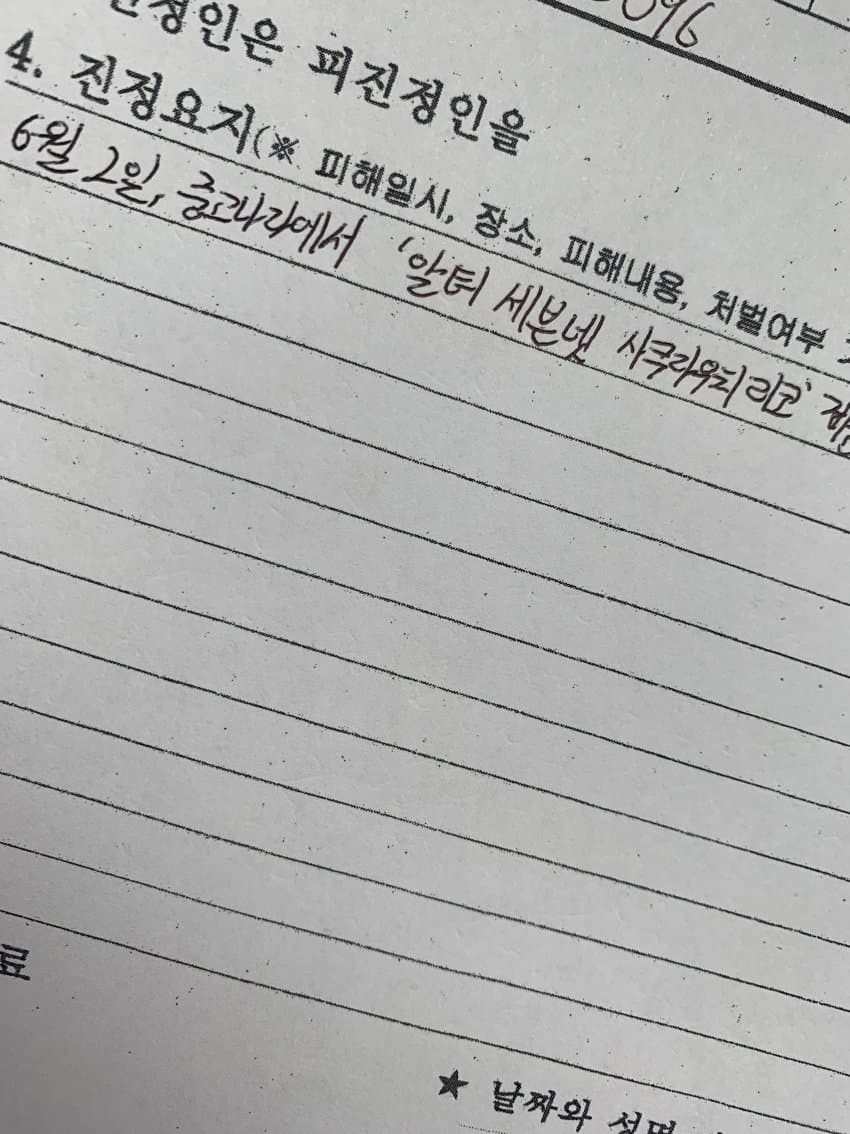 096
진정인은 피진정인을
4. 진정요지(※ 피해일시, 장소, 피해내용, 처벌여부
6월 2일, 중고나라에서 '알터 세븐넷 사쿠라우치 리코'
료
★ 날짜와 성명